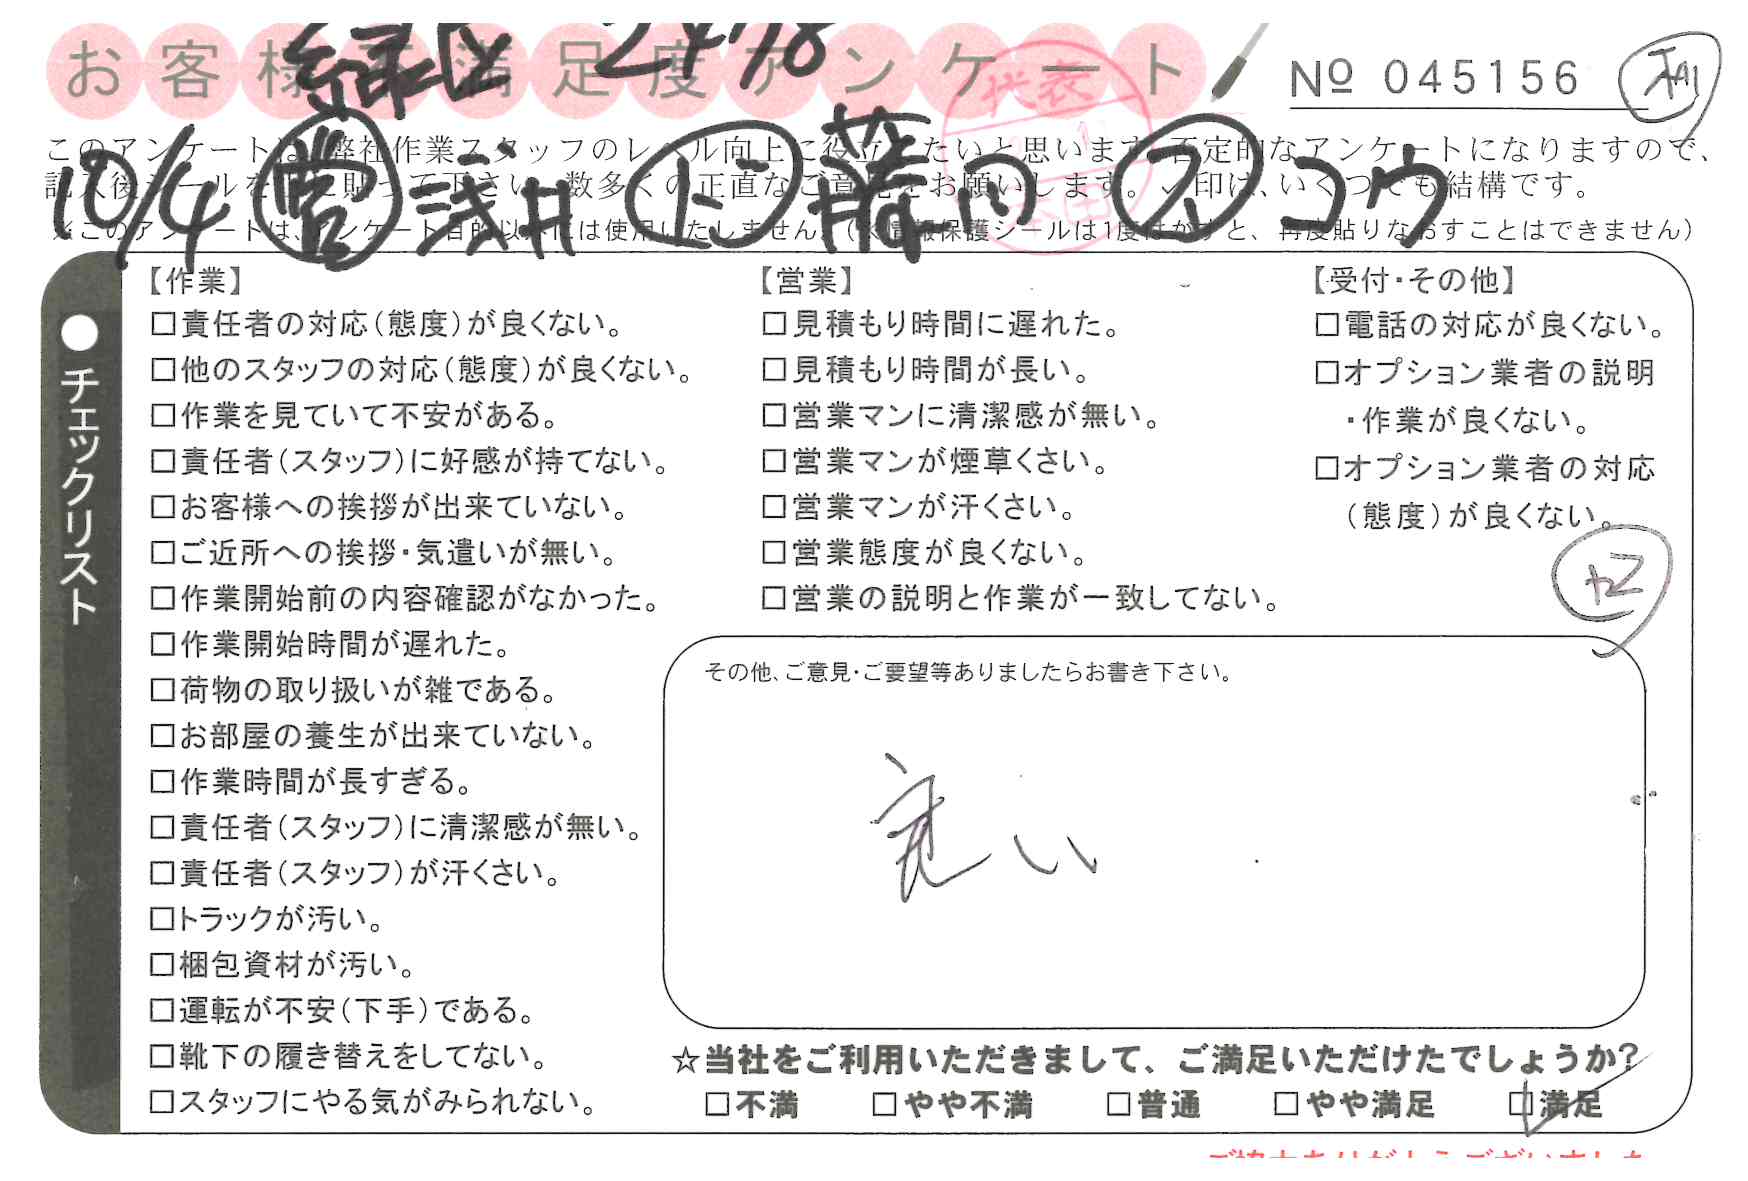 緑区 2478
お客様不満足度アンケート
№ 045156
このアンケートは、弊社作業スタッフのレベル向上に役立てたいと思います。否定的なアンケートになりますので、
記入後シールを上に貼って下さい。数多くの正直なご意見をお願いします。✓印は、いくつでも結構です。
10/4 営 浅井 ド 藤田 ス コウ
※このアンケートは、アンケート目的以外には使用いたしません。(※情報保護シールは1度はがすと、再度貼りなおすことはできません)
●チェックリスト
【作業】
□責任者の対応(態度)が良くない。
□他のスタッフの対応(態度)が良くない。
□作業を見ていて不安がある。
□責任者(スタッフ)に好感が持てない。
□お客様への挨拶が出来ていない。
□ご近所への挨拶・気遣いが無い。
□作業開始前の内容確認がなかった。
□作業開始時間が遅れた。
□荷物の取り扱いが雑である。
□お部屋の養生が出来ていない。
□作業時間が長すぎる。
□責任者(スタッフ)に清潔感が無い。
□責任者(スタッフ)が汗くさい。
□トラックが汚い。
□梱包資材が汚い。
□運転が不安(下手)である。
□靴下の履き替えをしてない。
□スタッフにやる気がみられない。
【営業】
□見積もり時間に遅れた。
□見積もり時間が長い。
□営業マンに清潔感が無い。
□営業マンが煙草くさい。
□営業マンが汗くさい。
□営業態度が良くない。
□営業の説明と作業が一致してない。
【受付・その他】
□電話の対応が良くない。
□オプション業者の説明
・作業が良くない。
□オプション業者の対応
(態度)が良くない。
その他、ご意見・ご要望等ありましたらお書き下さい。
良い
☆当社をご利用いただきまして、ご満足いただけたでしょうか?
□不満 □やや不満 □普通 □やや満足 ☑満足
ご協力ありがとうございました